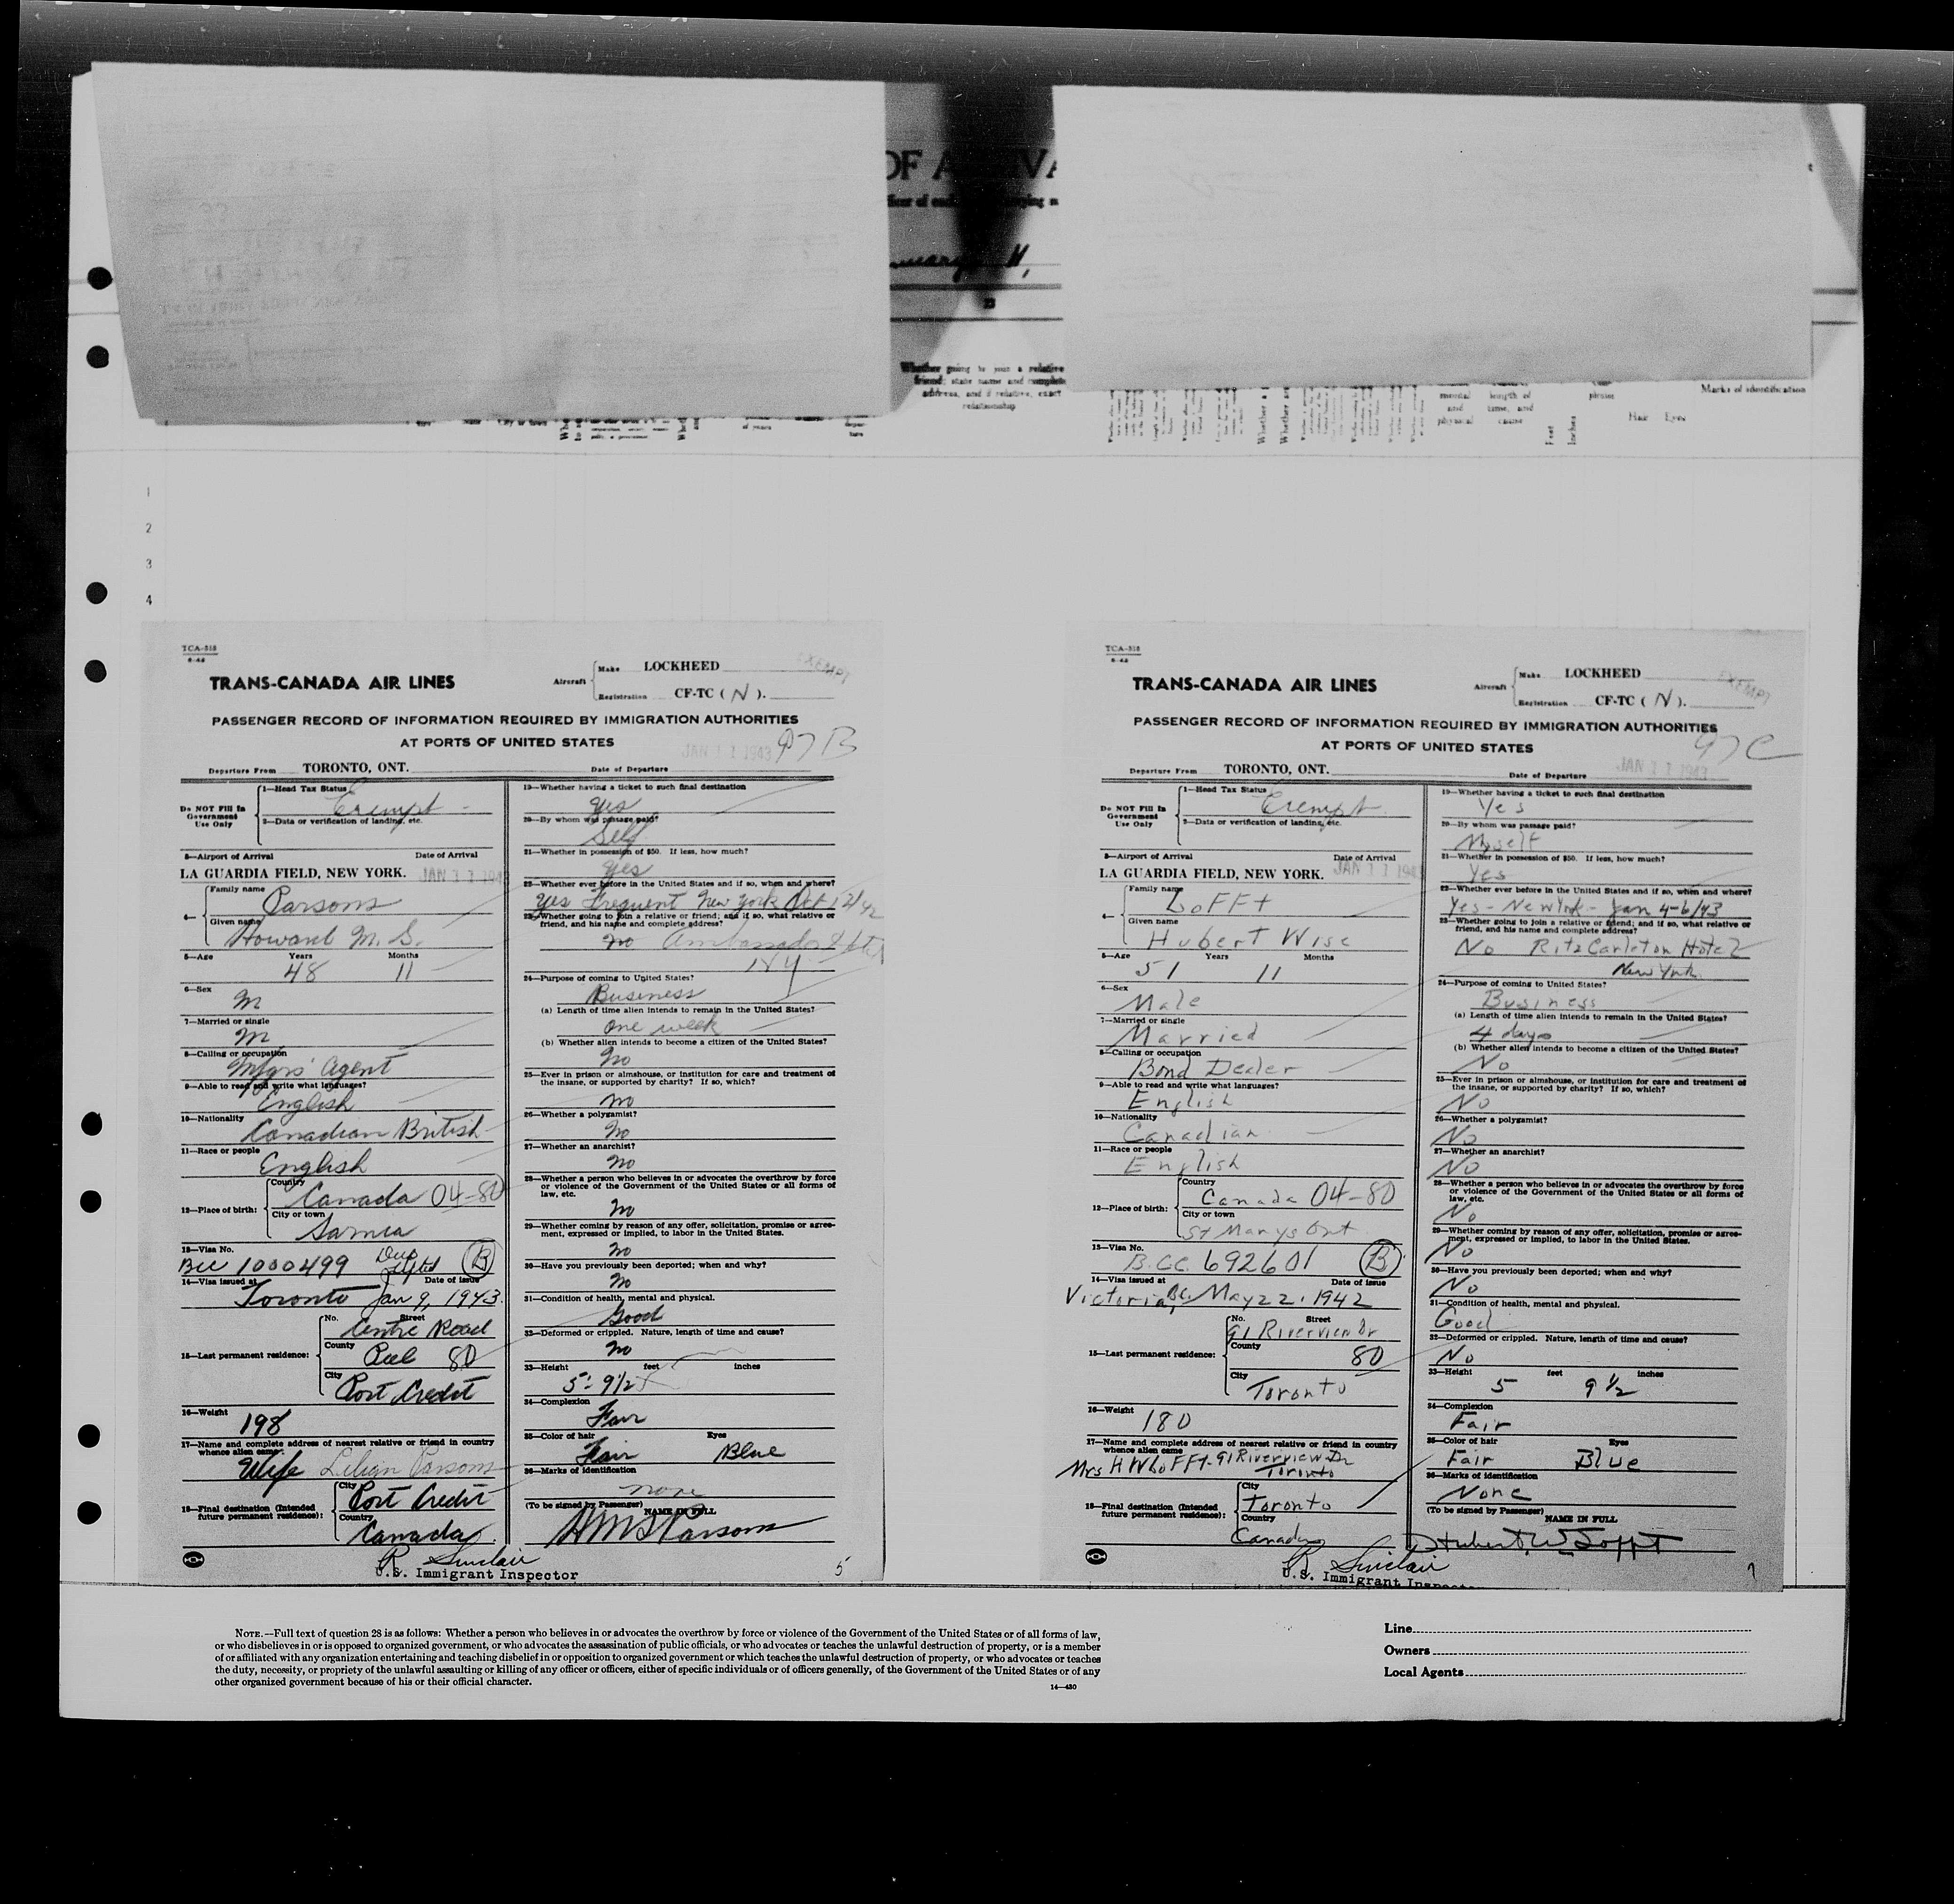 OF A
Whether going to join a relative
friend; state name and complete
address, and if relative, exact
relationship
mental
and
physical
length of
time, and
cause
Feet
Inches
Hair Eyes
Marks of identification
1
2
3
4
TCA-518
6-42
TRANS-CANADA AIR LINES
Aircraft
Make LOCKHEED
Registration CF-TC ( N ).
EXEMPT
PASSENGER RECORD OF INFORMATION REQUIRED BY IMMIGRATION AUTHORITIES
AT PORTS OF UNITED STATES
JAN 11 1943
97B
Departure From TORONTO, ONT.
Date of Departure
Do NOT Fill In
Government
Use Only
1—Head Tax Status
Exempt
2—Data or verification of landing, etc.
3—Airport of Arrival Date of Arrival
LA GUARDIA FIELD, NEW YORK. JAN 11 194
4—
Family name
Parsons
Given name
Howard M. S.
5—Age Years Months
48 11
6—Sex
M
7—Married or single
M
8—Calling or occupation
Mfgrs' Agent
9—Able to read and write what languages?
English
10—Nationality
Canadian British
11—Race or people
English
12—Place of birth:
Country
Canada 04-80
City or town
Sarnia
13—Visa No.
BCC 1000499 Dup lifted B
14—Visa issued at Date of issue
Toronto Jan 9, 1943
15—Last permanent residence:
No. Street
Centre Road
County
Peel 80
City
Port Credit
16—Weight
198
17—Name and complete address of nearest relative or friend in country
whence alien came.
Wife Lilian Parsons
18—Final destination (Intended
future permanent residence):
City
Port Credit
Country
Canada
19—Whether having a ticket to such final destination
yes
20—By whom was passage paid?
Self
21—Whether in possession of $50. If less, how much?
yes
22—Whether ever before in the United States and if so, when and where?
yes frequent New York Oct 12/42
23—Whether going to join a relative or friend; and if so, what relative or
friend, and his name and complete address?
no Ambassador Hotel
NY
24—Purpose of coming to United States?
Business
(a) Length of time alien intends to remain in the United States?
one week
(b) Whether alien intends to become a citizen of the United States?
no
25—Ever in prison or almshouse, or institution for care and treatment of
the insane, or supported by charity? If so, which?
no
26—Whether a polygamist?
no
27—Whether an anarchist?
no
28—Whether a person who believes in or advocates the overthrow by force
or violence of the Government of the United States or all forms of
law, etc.
no
29—Whether coming by reason of any offer, solicitation, promise or agree-
ment, expressed or implied, to labor in the United States.
no
30—Have you previously been deported; when and why?
no
31—Condition of health, mental and physical.
Good
32—Deformed or crippled. Nature, length of time and cause?
no
33—Height feet inches
5' 9½
34—Complexion
Fair
35—Color of hair Eyes
Fair Blue
36—Marks of identification
none
(To be signed by Passenger)
NAME IN FULL
HMS Parsons
R Sinclair
U.S. Immigrant Inspector
5
TCA-518
6-42
TRANS-CANADA AIR LINES
Aircraft
Make LOCKHEED
Registration CF-TC ( N ).
EXEMPT
PASSENGER RECORD OF INFORMATION REQUIRED BY IMMIGRATION AUTHORITIES
AT PORTS OF UNITED STATES
97C
JAN 11 1943
Departure From TORONTO, ONT.
Date of Departure
Do NOT Fill In
Government
Use Only
1—Head Tax Status
Exempt
2—Data or verification of landing, etc.
3—Airport of Arrival Date of Arrival
LA GUARDIA FIELD, NEW YORK. JAN 11 1943
4—
Family name
LoFFt
Given name
Hubert Wise
5—Age Years Months
51 11
6—Sex
Male
7—Married or single
Married
8—Calling or occupation
Bond Dealer
9—Able to read and write what languages?
English
10—Nationality
Canadian
11—Race or people
English
12—Place of birth:
Country
Canada 04-80
City or town
St Marys Ont
13—Visa No.
B.CC. 692601 B
14—Visa issued at Date of issue
Victoria, BC. May 22, 1942
15—Last permanent residence:
No. Street
91 Riverview Dr
County
80
City
Toronto
16—Weight
180
17—Name and complete address of nearest relative or friend in country
whence alien came
Mrs H W LoFFt - 91 Riverview Dr
Toronto
18—Final destination (Intended
future permanent residence):
City
Toronto
Country
Canada
19—Whether having a ticket to such final destination
Yes
20—By whom was passage paid?
Myself
21—Whether in possession of $50. If less, how much?
Yes
22—Whether ever before in the United States and if so, when and where?
Yes - New York - Jan 4-6/43
23—Whether going to join a relative or friend; and if so, what relative or
friend, and his name and complete address?
No Ritz Carleton Hotel
New York.
24—Purpose of coming to United States?
Business
(a) Length of time alien intends to remain in the United States?
4 days
(b) Whether alien intends to become a citizen of the United States?
No
25—Ever in prison or almshouse, or institution for care and treatment of
the insane, or supported by charity? If so, which?
No
26—Whether a polygamist?
No
27—Whether an anarchist?
No
28—Whether a person who believes in or advocates the overthrow by force
or violence of the Government of the United States or all forms of
law, etc.
No
29—Whether coming by reason of any offer, solicitation, promise or agree-
ment, expressed or implied, to labor in the United States.
No
30—Have you previously been deported; when and why?
No
31—Condition of health, mental and physical.
Good
32—Deformed or crippled. Nature, length of time and cause?
No
33—Height feet inches
5 9½
34—Complexion
Fair
35—Color of hair Eyes
Fair Blue
36—Marks of identification
None
(To be signed by Passenger)
NAME IN FULL
Hubert W Lofft
R Sinclair
U.S. Immigrant Inspector
7
NOTE.—Full text of question 28 is as follows: Whether a person who believes in or advocates the overthrow by force or violence of the Government of the United States or of all forms of law,
or who disbelieves in or is opposed to organized government, or who advocates the assassination of public officials, or who advocates or teaches the unlawful destruction of property, or is a member
of or affiliated with any organization entertaining and teaching disbelief in or opposition to organized government or which teaches the unlawful destruction of property, or who advocates or teaches
the duty, necessity, or propriety of the unlawful assaulting or killing of any officer or officers, either of specific individuals or of officers generally, of the Government of the United States or of any
other organized government because of his or their official character.
14—430
Line
Owners
Local Agents